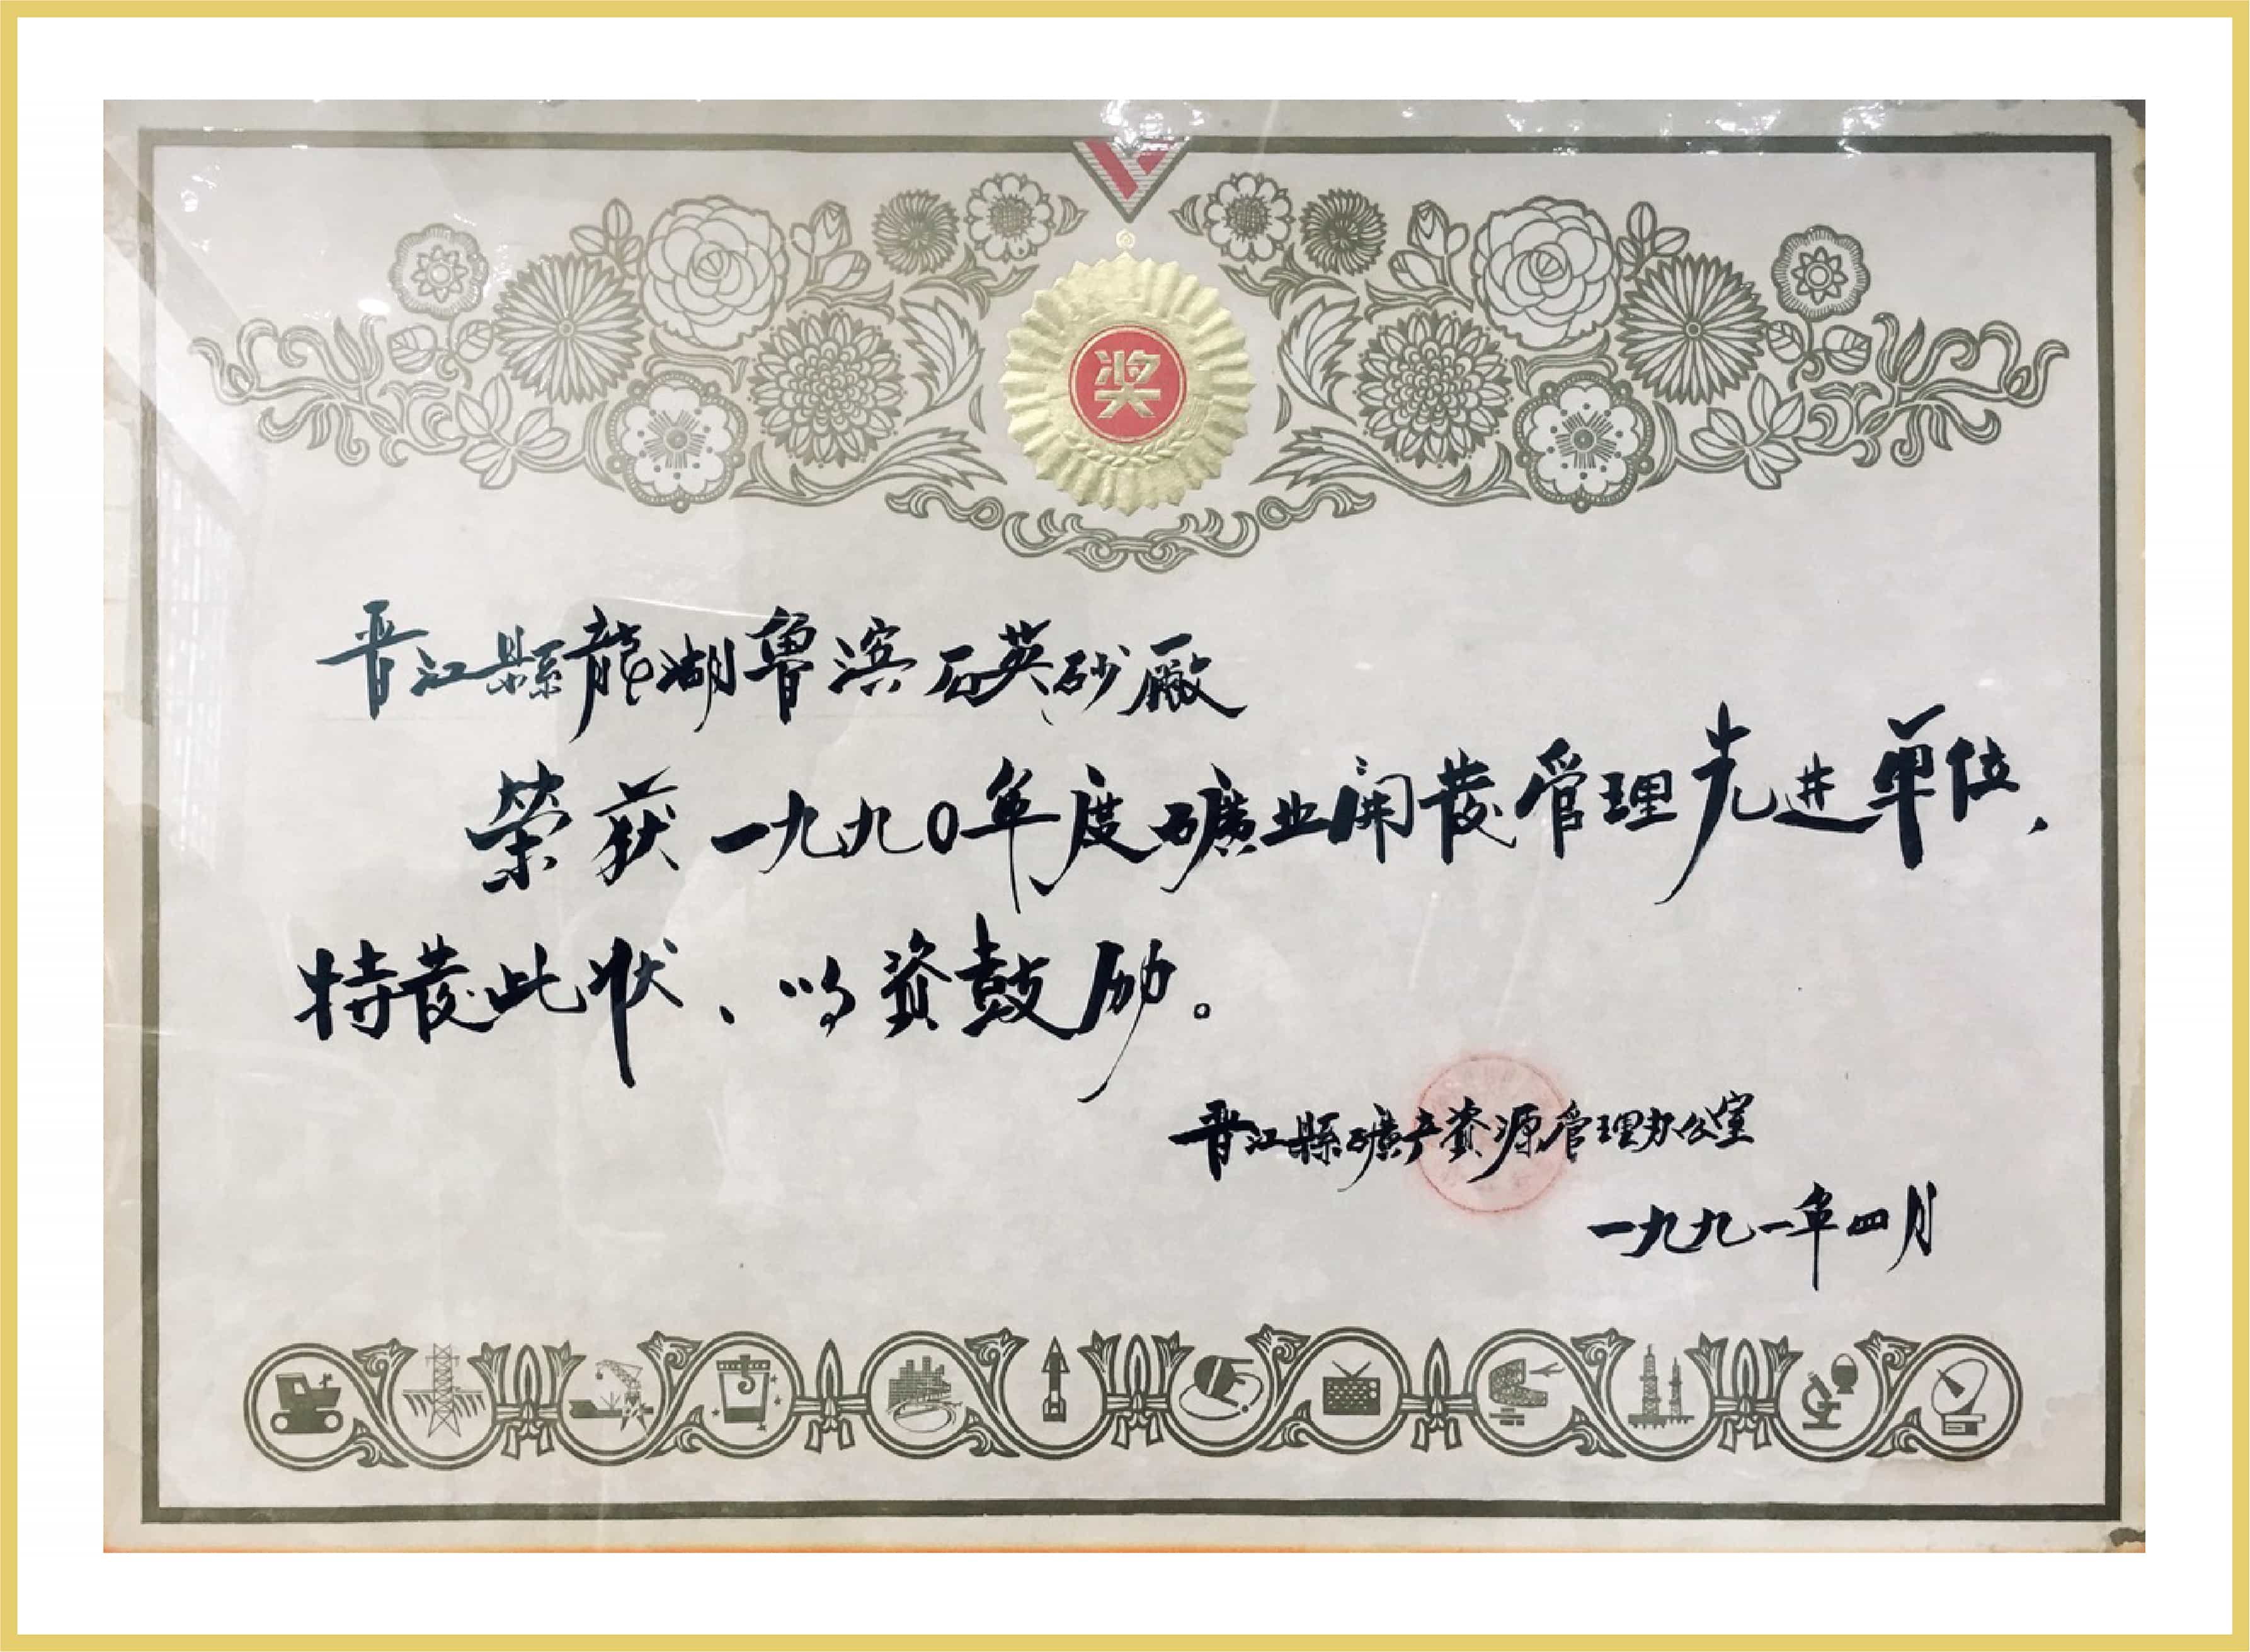 奖
晋江縣龍湖魯滨石英砂廠
荣获一九九〇年度礦业開發管理先进单位，
特發此状、以资鼓励。
晋江縣礦产资源管理办公室
一九九一年四月